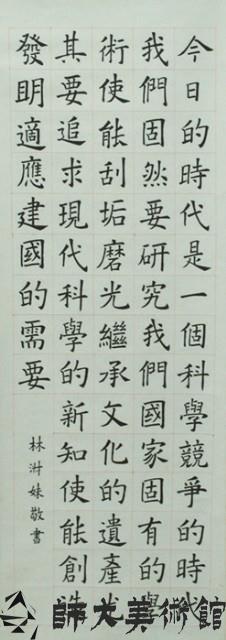 今日的時代是一個科學競爭的時代
我們固然要研究我們國家固有的學
術使能刮垢磨光繼承文化的遺產尤
其要追求現代科學的新知使能創造
發明適應建國的需要
林澍妹敬書
師大美術館